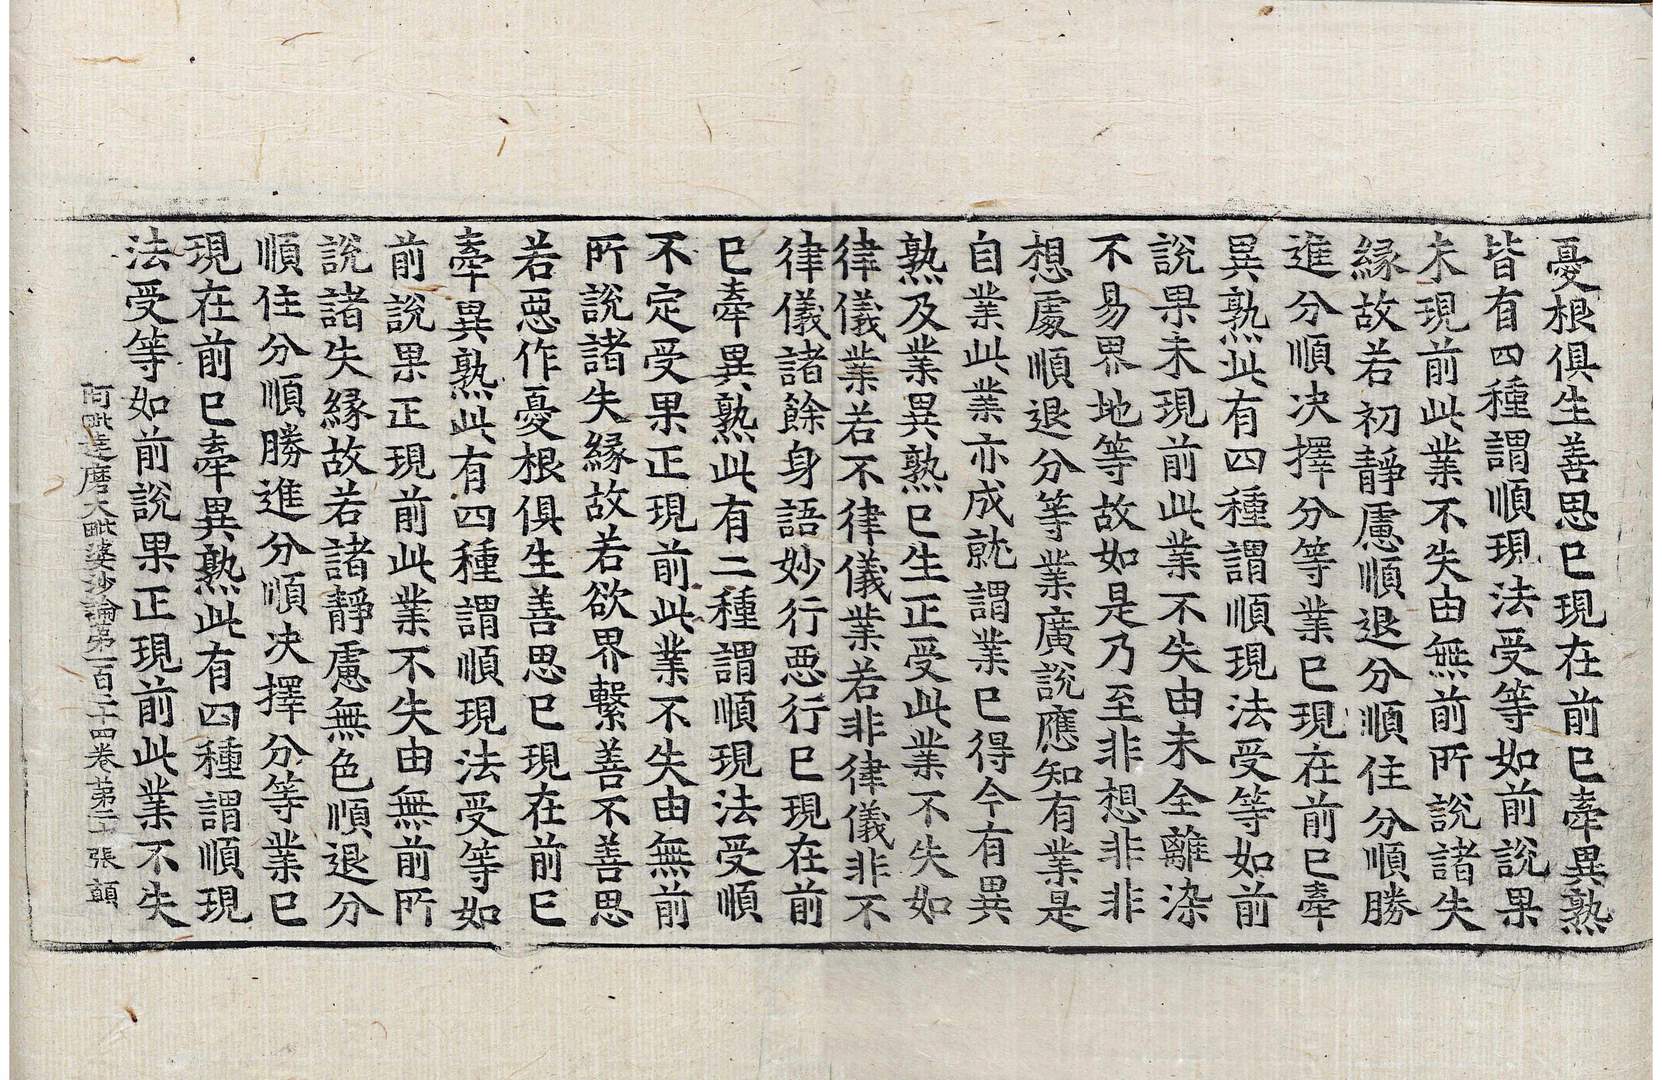 憂根俱生善思已現在前已牽異熟
皆有四種謂順現法受等如前說果
未現前此業不失由無前所說諸失
緣故若初靜慮順退分順住分順勝
進分順决擇分等業已現在前已牽
異熟此有四種謂順現法受等如前
說果未現前此業不失由未全離染
不易界地等故如是乃至非想非非
想處順退分等業廣說應知有業是
自業此業亦成就謂業已得今有異
熟及業異熟已生正受此業不失如
律儀業若不律儀業若非律儀非不
律儀諸餘身語妙行惡行已現在前
已牽異熟此有二種謂順現法受順
不定受果正現前此業不失由無前
所說諸失緣故若欲界繫善不善思
若惡作憂根俱生善思已現在前已
牽異熟此有四種謂順現法受等如
前說果正現前此業不失由無前所
說諸失緣故若諸靜慮無色順退分
順住分順勝進分順决擇分等業已
現在前已牽異熟此有四種謂順現
法受等如前說果正現前此業不失
阿毗達磨大毗婆沙論第一百二十四卷 苐二十 張